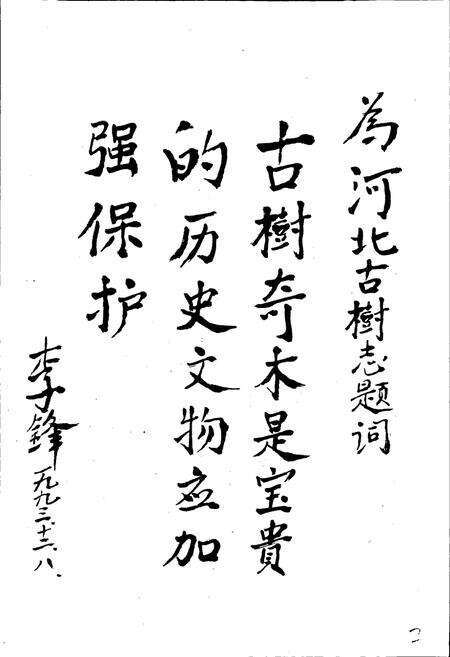 為河北古樹志題词
古樹奇木是宝貴
的历史文物应加
强保护
李鋒
一九九三.十二.八.